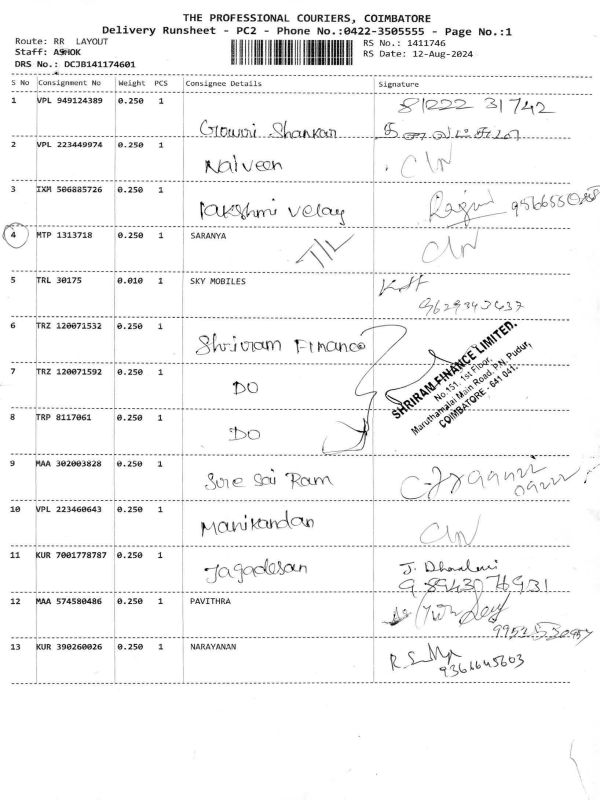 THE PROFESSIONAL COURIERS, COIMBATORE
Delivery Runsheet - PC2 - Phone No.:0422-3505555 - Page No.:1
Route: RR LAYOUT
RS No.: 1411746
Staff: ASHOK
RS Date: 12-Aug-2024
DRS No.: DCJB141174601
S No Consignment No Weight PCS Consignee Details Signature
1 VPL 949124389 0.250 1 Gowri Shankar 81222 31742
2 VPL 223449974 0.250 1 Naiveen C/N
3 IXM 506885726 0.250 1 lakshmi velay
4 MTP 1313718 0.250 1 SARANYA T/L C/N
5 TRL 30175 0.010 1 SKY MOBILES
9629343437
6 TRZ 120071532 0.250 1 Shriram Finance
7 TRZ 120071592 0.250 1 DO
8 TRP 8117061 0.250 1 DO
SHRIRAM FINANCE LIMITED.
No.151, 1st Floor,
Maruthamalai Main Road, P.N. Pudur,
COIMBATORE - 641 041.
9 MAA 302003828 0.250 1 Sire Sai Ram
10 VPL 223460643 0.250 1 Manikandan C/N
11 KUR 7001778787 0.250 1 Jagadesan J.
9 89430 76931
12 MAA 574580486 0.250 1 PAVITHRA
13 KUR 390260026 0.250 1 NARAYANAN
9366645603